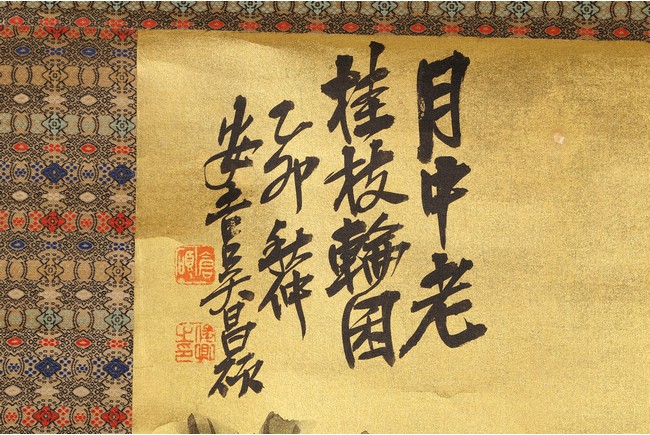 月中老
桂枝輪囷
乙卯秋仲
安吉吳昌碩
倉碩
俊卿之印